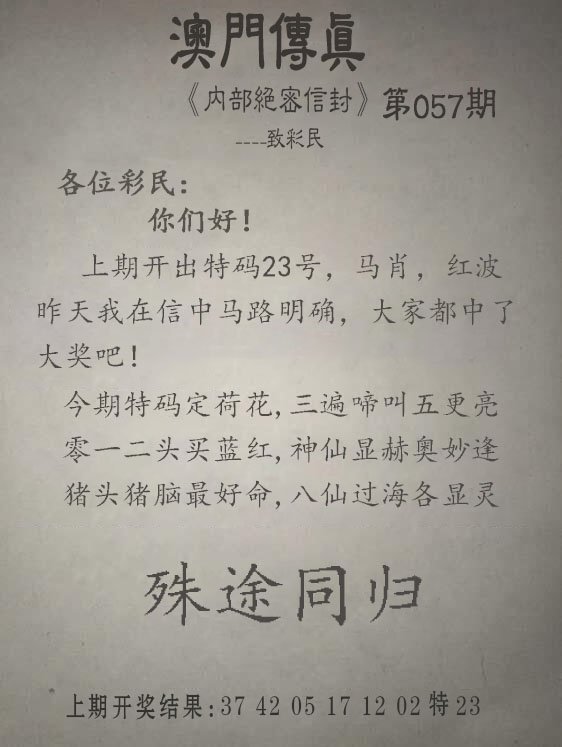 澳門傳真
《内部絕密信封》第057期
----致彩民
各位彩民：
你们好！
上期开出特码23号，马肖，红波
昨天我在信中马路明确，大家都中了
大奖吧！
今期特码定荷花,三遍啼叫五更亮
零一二头买蓝红,神仙显赫奥妙逢
猪头猪脑最好命,八仙过海各显灵
殊途同归
上期开奖结果:37 42 05 17 12 02特23